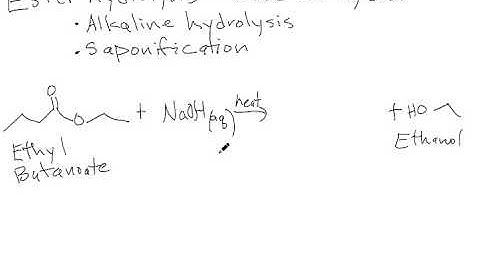 Ester hydrolysis -
• Alkaline hydrolysis
• Saponification
O
O + NaOH (aq) heat + HO
Ethyl
Butanoate
Ethanol